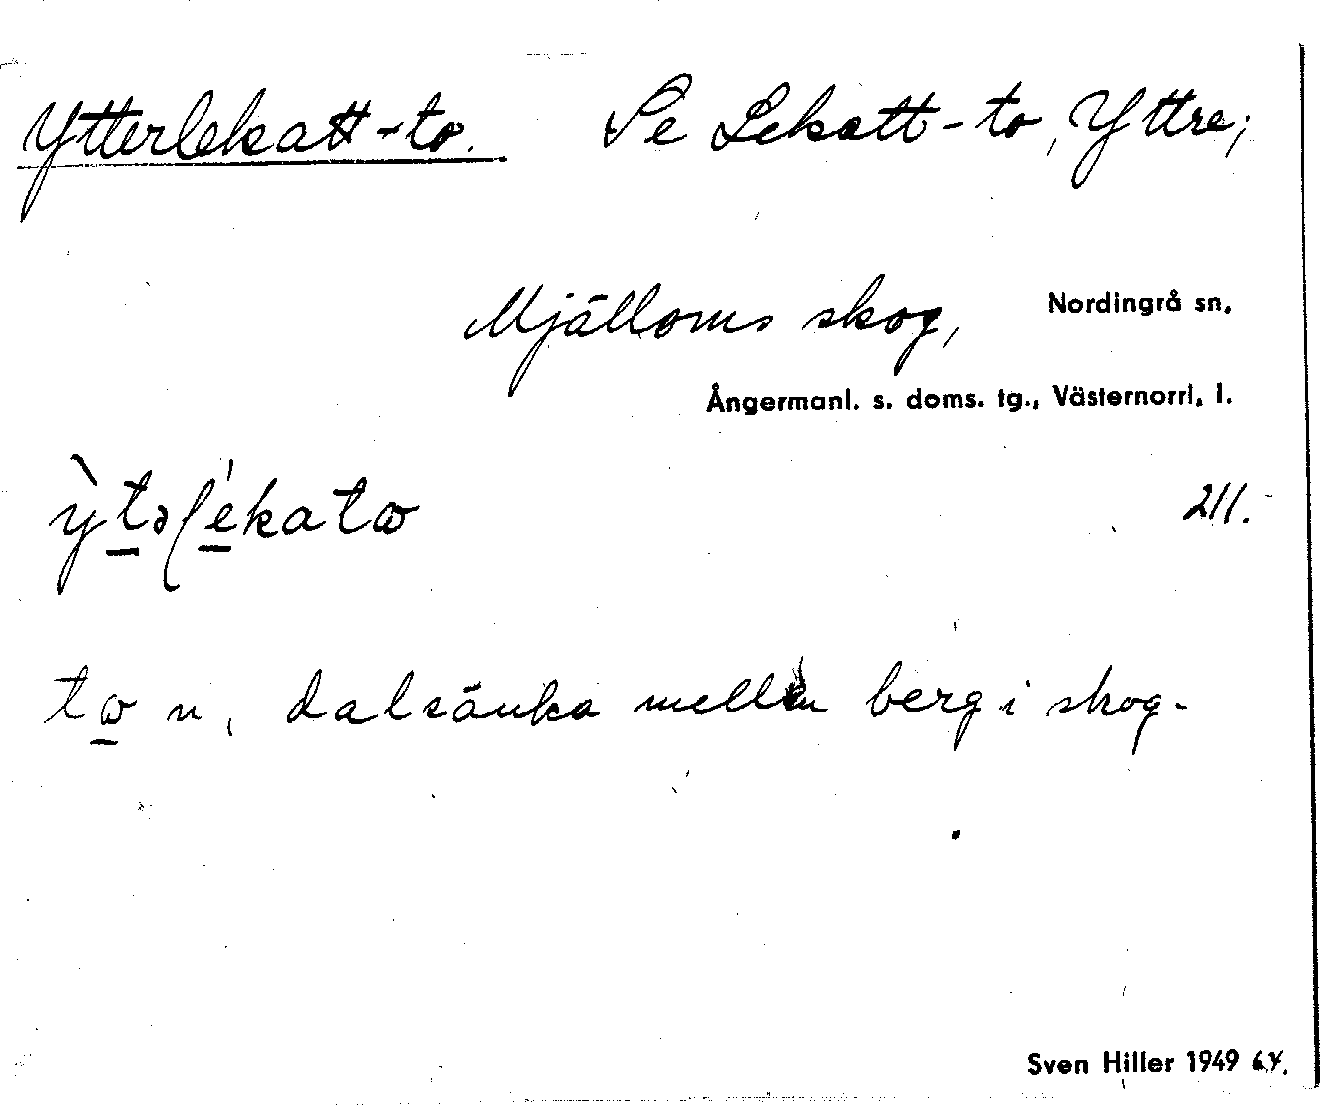 Ytterlekatt-to. Se Lekatt-to, Yttre;
Mjälloms skog, Nordingrå sn,
Ångermanl. s. doms. tg., Västernorrl, l.
ỳtəlékatω 211.
tω n, dalsänka mellan berg i skog.
Sven Hiller 1949